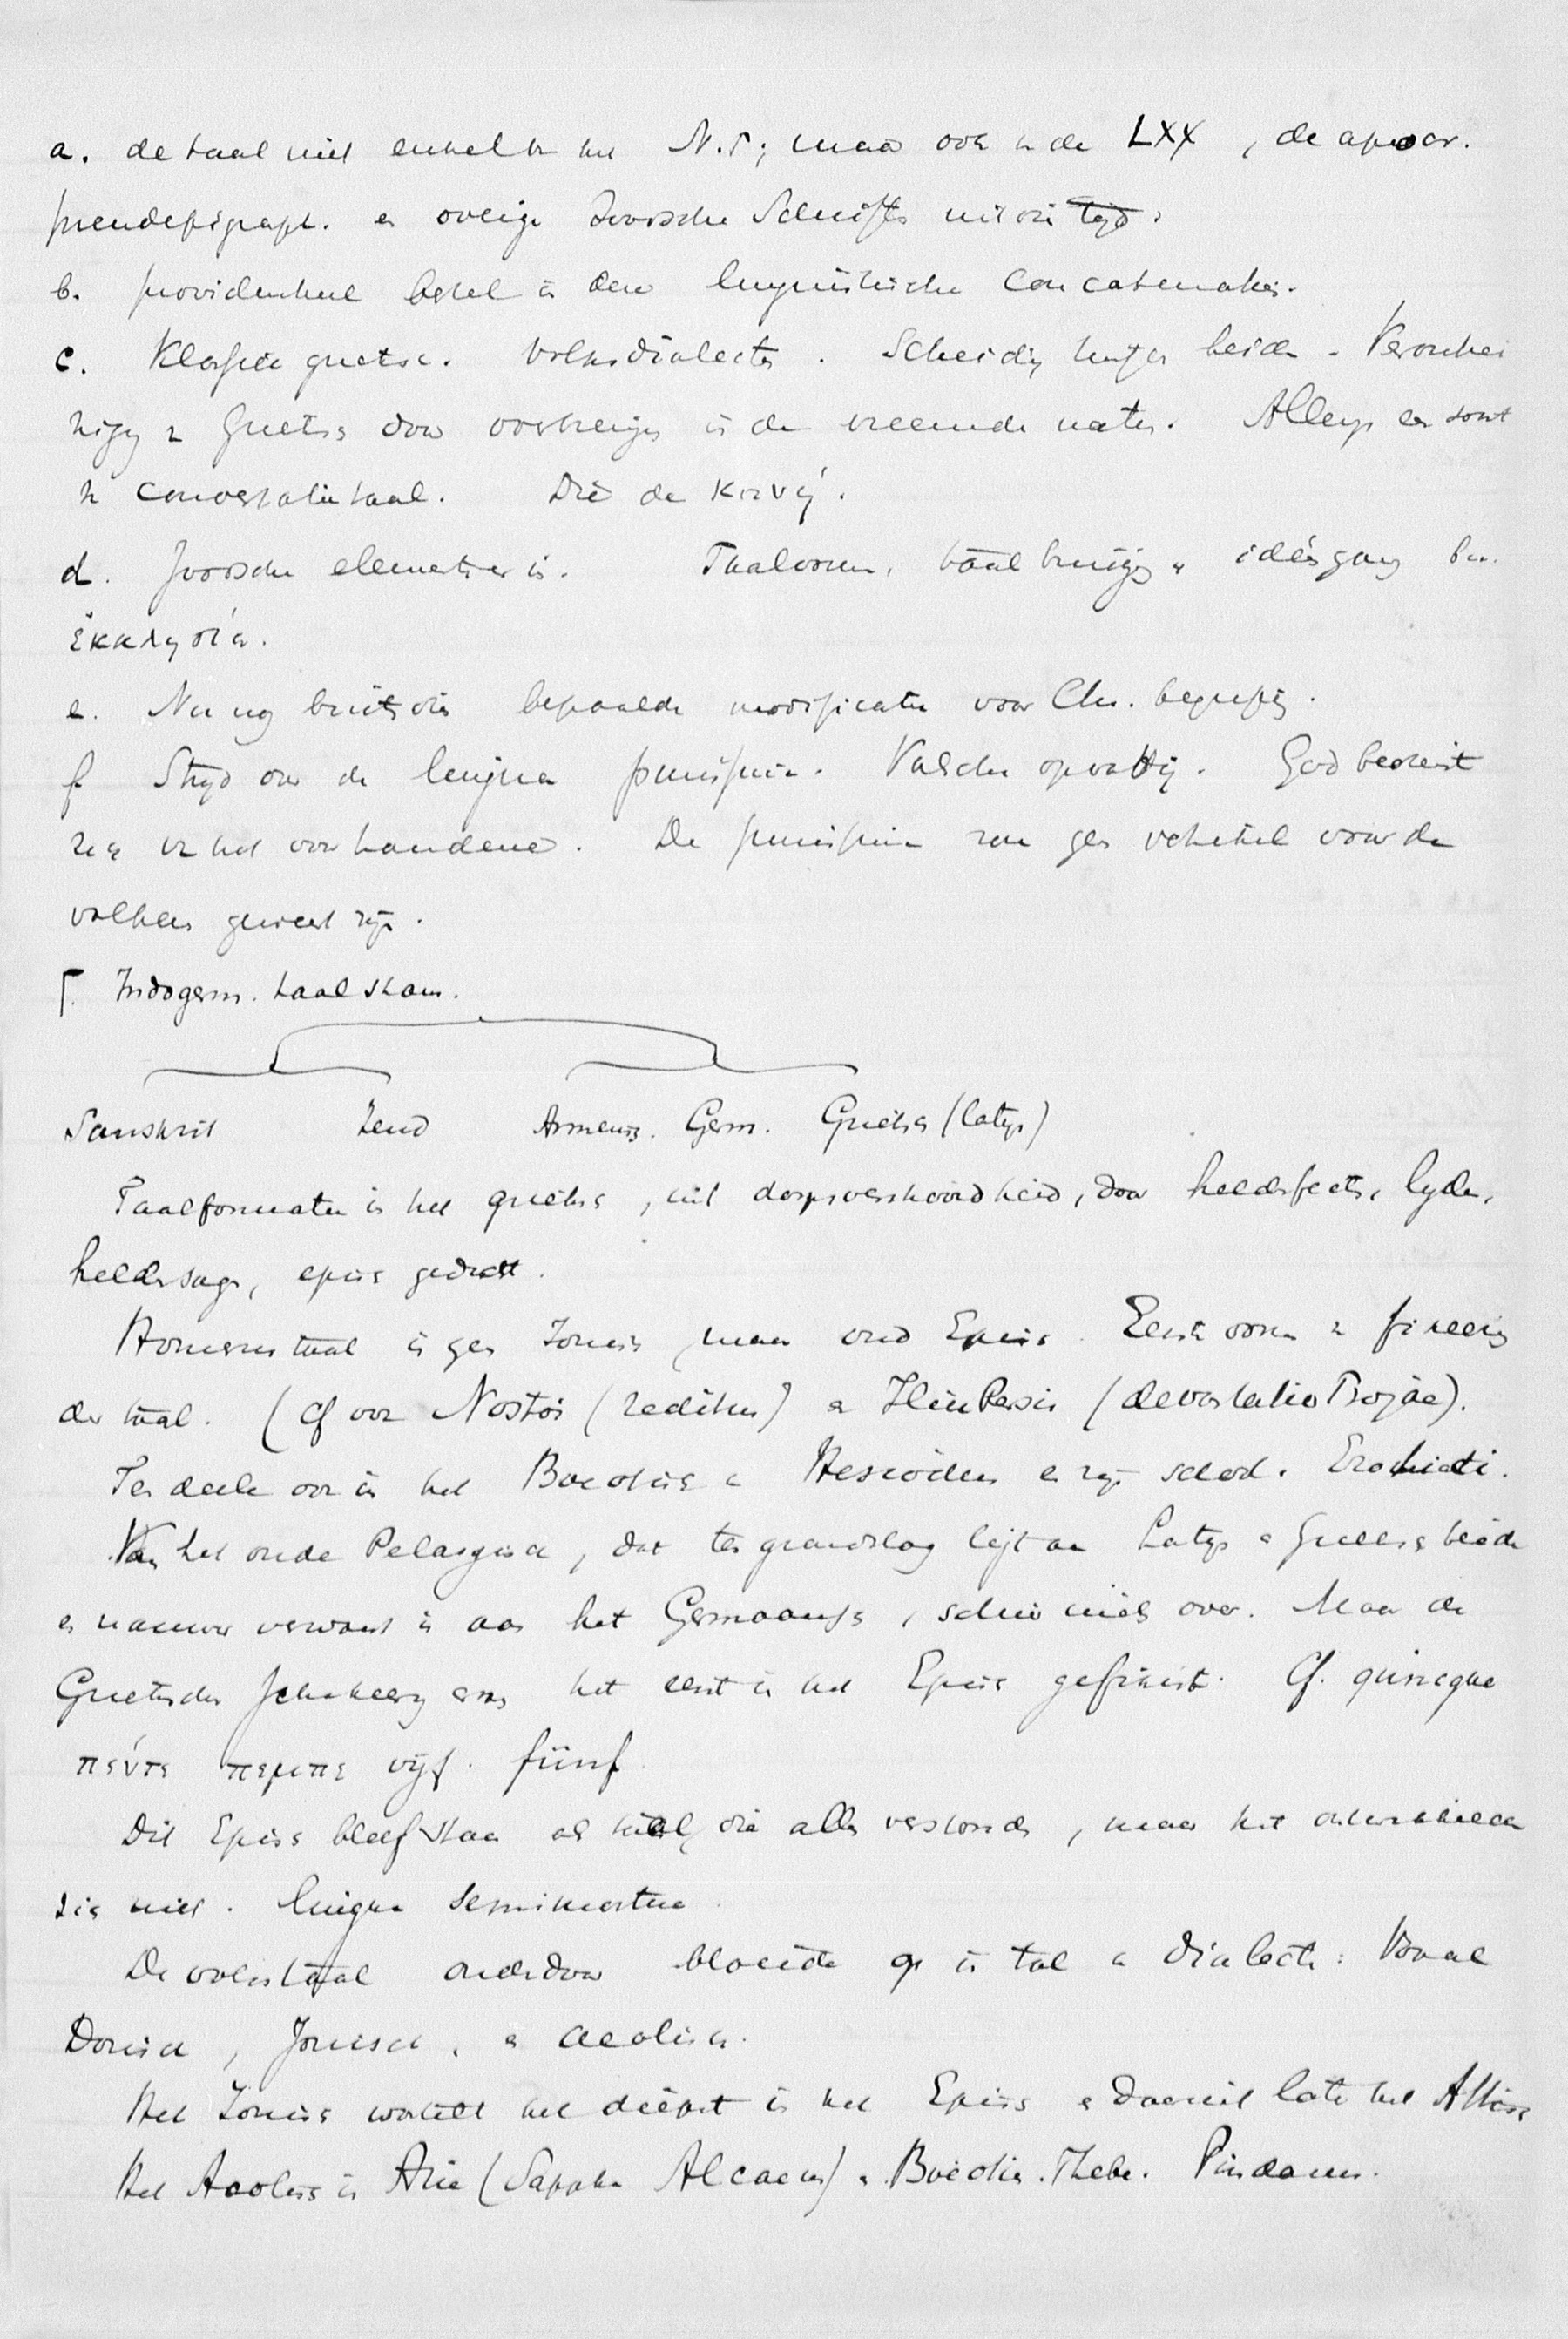 a. de taal niet enkel v. het N.T; maar ook v. de LXX, de apocr.
pseudepigraph. en overige Joodsche Schrifte uit die tijd.
b. providentieel bestel in deze linguistische concatenatie.
c. Klassiek grieksc. Volksdialecten. Scheidig tussen beide. Veronrei
nigg v Grieks door overbrenging in de vreemde naties. Allengs en soort
v conversatietaal. Die de κοινή.
d. Joodsche elementen er in. Taalvorm, taalbuiging en ideëngang Bv.
ἐκκλησία.
e. Nu nog buitendien bepaalde modificatie voor Chr. begrippen.
f Strijd over de lingua purissima. Valsche opvattig. God bedient
zich v. het voorhandene. De purissima zou geen vehikel voor de
volken geweest zijn.
Indogerm. taalstam.
Sanskrit Zend Armenis. Germ. Grieks (Latijn)
Taalformatie in het grieks, uit dorpsverscheidenheid, door heldefeiten, lyder,
heldesage, episc gedicht.
Homerus taal is geen Ionis, maar oud Episc. Eerste vorm v fixeerig
der taal. (Cf ook Nostoi (reditus) en Iliu Persis (devastatio Trojae).
Ten deele ook in het Boeotisc v Hesiodus en zijn school.
Van het oude Pelasgisch, dat ten grondslag ligt aan Latijn en Grieks beide
en nauwer verwant is aan het Germaans, schiet niets over. Maar de
Grieksche schakeerig ervan het eerst in het Episc gefixeerd. Cf. quinque
πέντε πεμπε vijf. fünf
Dit Episc bleef staan als taal die allen verstonden, maar het ontwikkelde
zich niet. lingua semimortua
De volkstaal onderdoor bloeide op in tal v dialecte: Vooral
Dorisch, Jonisch, en Aeolisch.
Het Ionisc wortelt het diepst in het Episc en daaruit later het Attisc
Het Aeolisc in Azië (Sappho Alcaeus) en Boeotie. Thebe. Pindarus.